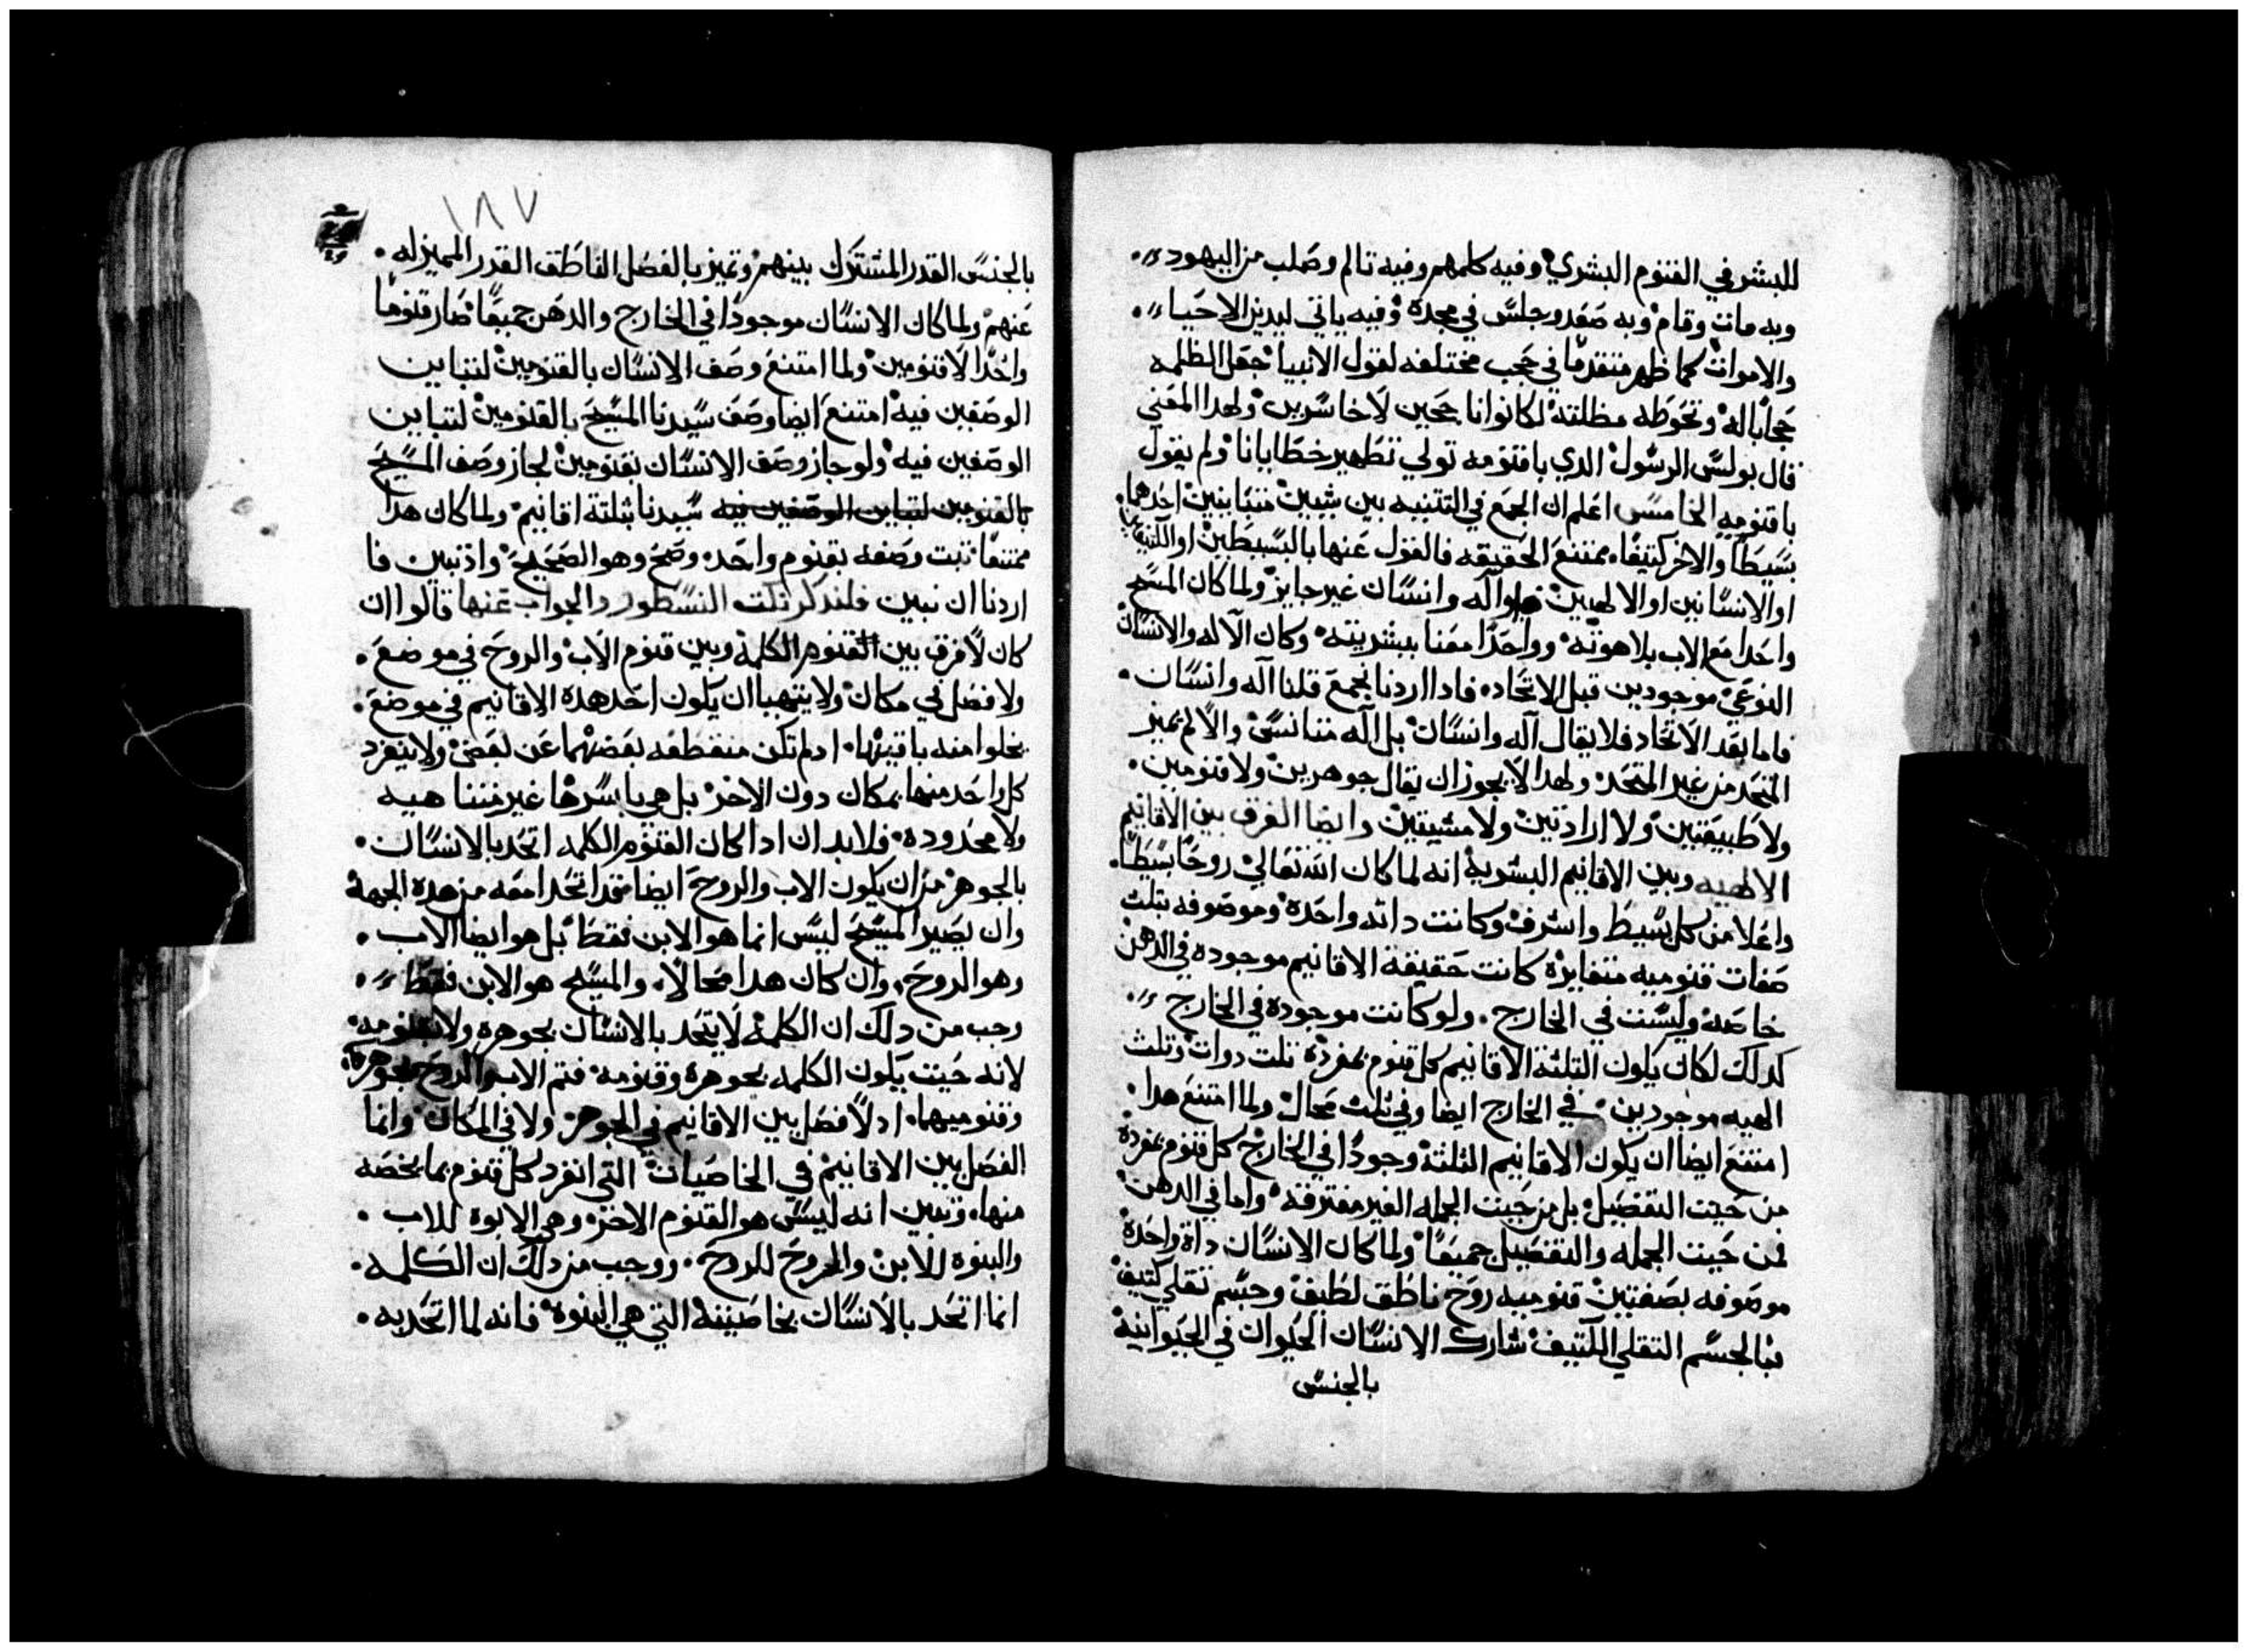 للبشر في القنوم البشري وفيه كلمهم وفيه تالم وصلب من اليهود
وبه مات وقام وبه صعد وجلس في مجده وفيه ياتي ليدين الاحيا
والاموات كما ظهر متقدما في حجب مختلفه لقول الانبيا جعل الظلمه
حجابا له وتحوطه مظلته لكانوا انا جحين لاخاسرين ولهدا المعني
قال بولس الرسول الدي باقنومه تولي تطهير خطايانا ولم يقول
باقنوميه الخامس اعلم ان الجمع في التتنيه بين شيين متباينين احدهما
بسيطا والاخر كتيفا ممتنع الحقيقه فالقول عنها بالبسيطين او الكتيفين
او الانسانين او الالهيين او اله وانسان غير جايز ولما كان المسيح
واحدا مع الاب بلاهوته وواحدا معنا ببشريته وكان الاله والانسان
النوعي موجودين قبل الاتحاد فادا اردنا نجمع قلنا اله وانسان
فاما بعد الاتحاد فلا يقال اله وانسان بل اله متانس والا لم نميز
المتحد من غير المتحد ولهدا لا يجوز ان يقال جوهرين ولا قنومين
ولا طبيعتين ولا ارادتين ولا مشيتين وايضا الفرق بين الاقانيم
الالهيه وبين الاقانيم البشريه انه لما كان الله تعالي روحا بسيطا
واعلا من كل بسيط واشرف وكانت داته واحده وموصوفه بتلت
صفات قنوميه متغايره كانت حقيقة الاقانيم موجوده في الدهن
خاصه وليست في الخارج ولو كانت موجوده في الخارج
كدلك لكان يكون التلتة الاقانيم كل قنوم بمفرده تلت دوات وتلت
الهيه موجودين في الخارج ايضا وفي تلت محال ولما امتنع هدا
امتنع ايضا ان يكون الاقانيم التلتة وجودا في الخارج كل قنوم بمفرده
من حيت التفضيل بل من حيت الجمله الغير مفترقه واما في الدهن
فمن حيت الجمله والتفضيل جميعا ولما كان الانسان داة واحده
موصوفه بصفتين قنوميه روح ناطق لطيف وجسم تقلي كتيف
فبالجسم التقلي الكتيف شارك الانسان الحيوان في الحيوانية
بالجنس
١٨٧
بالجنس القدر المشترك بينهم وتميز بالفصل الناطق القدر المميز له
عنهم ولما كان الانسان موجودا في الخارج والدهن جميعا صار قنوما
واحدا لا قنومين ولما امتنع وصف الانسان بالقنومين لتباين
الوصفين فيه امتنع ايضا وصف سيدنا المسيح بالقنومين لتباين
الوصفين فيه ولو جاز وصف الانسان بقنومين لجاز وصف المسيح
بالقنومين لتباين الوصفين فيه سيدنا بتلتة اقانيم ولما كان هدا
ممتنعا تبت وصفه بقنوم واحد وصح وهو الصحيح واد تبين فا
اردنا ان نبين فلندكر نكت النسطور والجواب عنها قالوا ان
كان لا فرق بين القنوم الكلمة وبين قنوم الاب والروح في موضع
ولا فصل في مكان ولا يتهيا ان يكون احد هده الاقانيم في موضع
يخلوا منه باقيها اد لم تكن منقطعه بعضها عن بعض ولا ينفرد
كل واحد منها بمكان دون الاخر بل هي باسرها غير متناهيه
ولا محدوده فلا بد ان ادا كان القنوم الكلمه اتحد بالانسان
بالجوهر من ان يكون الاب والروح ايضا قد اتحدا معه من هده الجهة
وان يصير المسيح ليس انما هو الابن فقط بل هو ايضا الاب
وهو الروح وان كان هدا محالا والمسيح هو الابن فقط
وجب من دلك ان الكلمة لا يتحد بالانسان بجوهره ولا بقنومه
لانه حيت يكون الكلمه بجوهره وقنومه فتم الاب والروح بجوهرهما
وقنوميهما اد لا فصل بين الاقانيم في الجوهر ولا في المكان وانما
الفصل بين الاقانيم في الخاصيات التي انفرد كل قنوم بما يخصه
منها وتبين انه ليس هو القنوم الاخر وهي الابوه للاب
والبنوه للابن والخروج للروح ووجب من دلك ان الكلمه
انما اتحد بالانسان بخاصيته التي هي البنوه فانه لما اتحد به